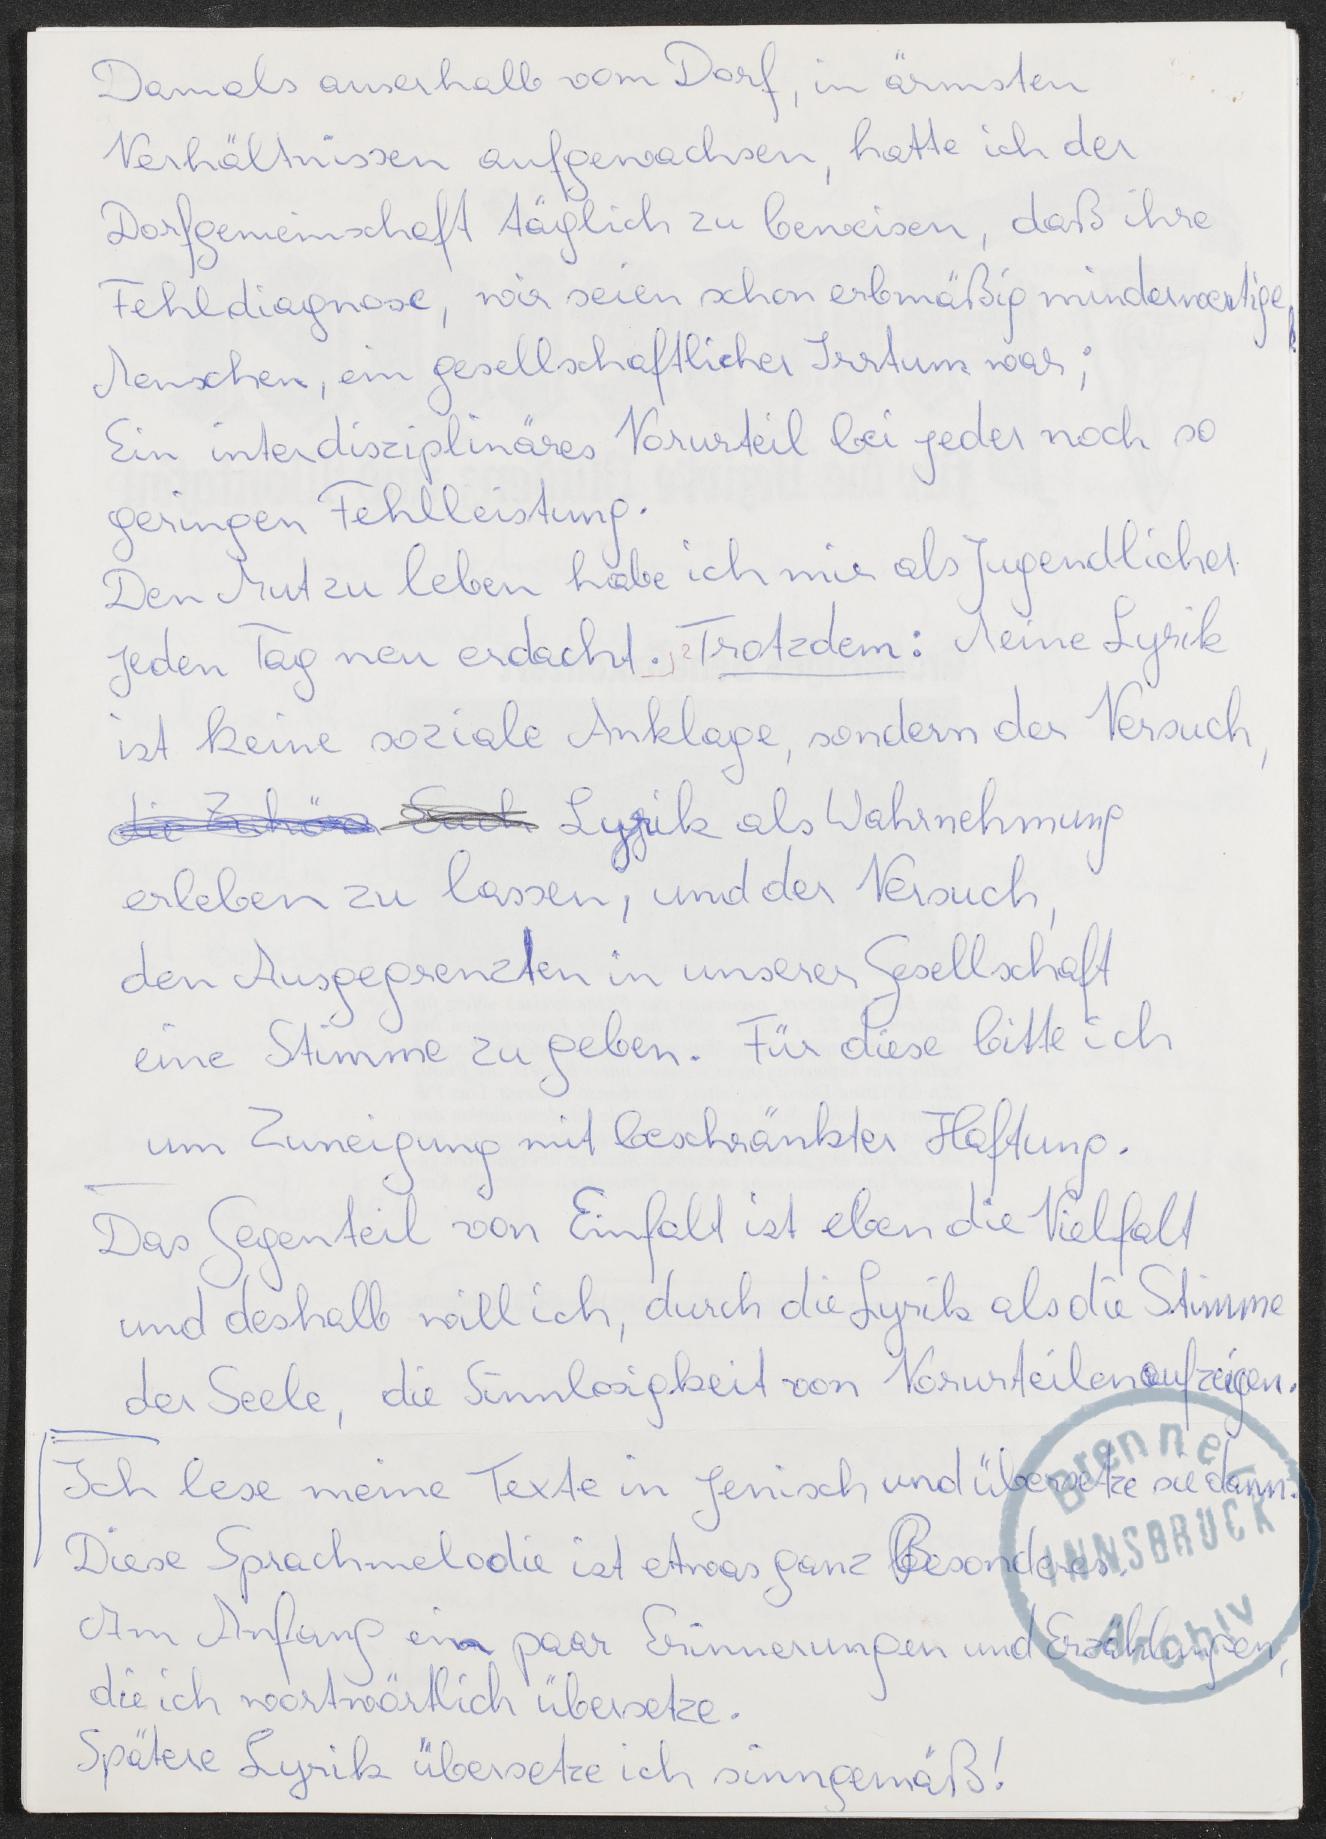 Damals auserhalb vom Dorf, in ärmsten
Verhältnissen aufgewachsen, hatte ich der
Dorfgemeinschaft täglich zu beweisen, daß ihre
Fehldiagnose, wir seien schon erbmäßig minderwertige
Menschen, ein gesellschaftlicher Irrtum war;
Ein interdisziplinäres Vorurteil bei jeder noch so
geringen Fehlleistung.
Den Mut zu leben habe ich mir als Jugendlicher
jeden Tag neu erdacht. Trotzdem: Meine Lyrik
ist keine soziale Anklage, sondern der Versuch,
Lyrik als Wahrnehmung
erleben zu lassen, und der Versuch,
den Ausgegrenzten in unserer Gesellschaft
eine Stimme zu geben. Für diese bitte ich
um Zuneigung mit beschränkter Haftung.
Das Gegenteil von Einfalt ist eben die Vielfalt
und deshalb will ich, durch die Lyrik als die Stimme
der Seele, die Sinnlosigkeit von Vorurteilen aufzeigen.
Ich lese meine Texte in Jenisch und übersetze sie dann.
Diese Sprachmelodie ist etwas ganz Besonderes.
Am Anfang ein paar Erinnerungen und Erzählungen,
die ich wortwörtlich übersetze.
Spätere Lyrik übersetze ich sinngemäß!
Brenner
INNSBRUCK
Archiv